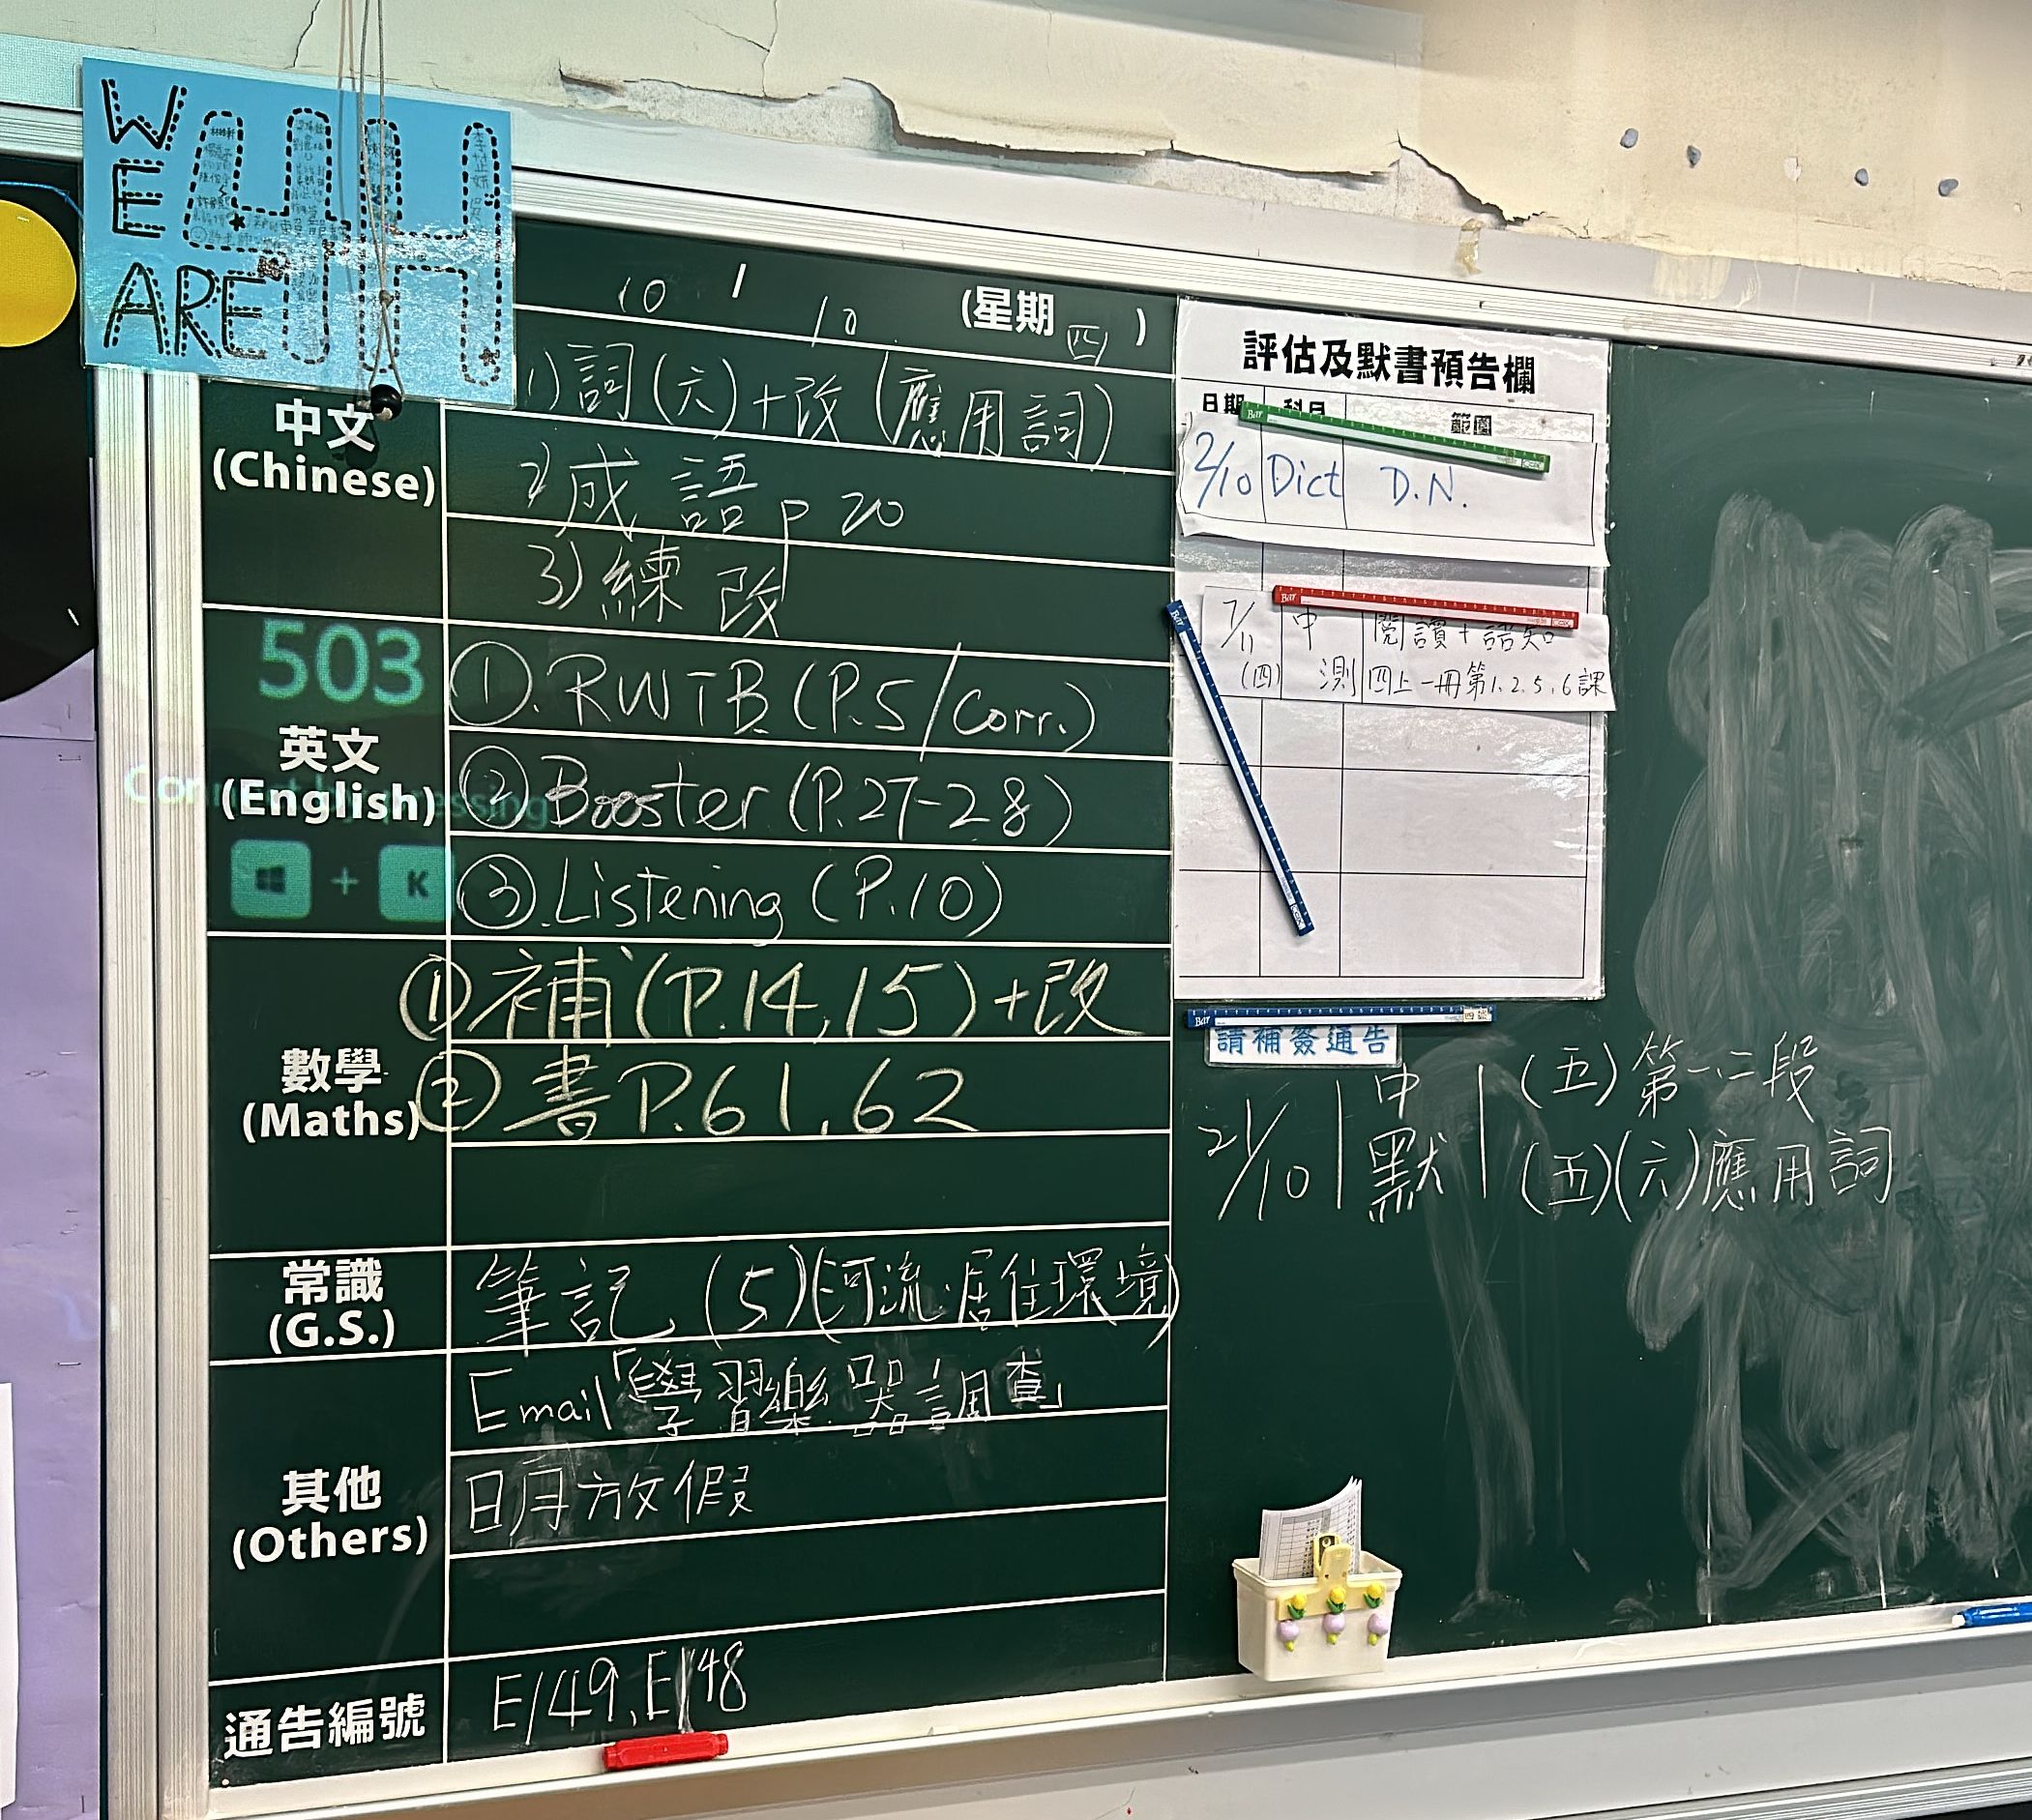 WE
ARE
4H.
10 / 10 (星期四)
中文
(Chinese)
1)詞(六)+改(應用詞)
2)成語 p 20
3)練改
503
英文
(English)
+ K
①.RWTB(P.5/Corr.)
②Booster(P.27-28)
③.Listening(P.10)
數學
(Maths)
①補(P.14,15)+改
②書P.61,62
常識
(G.S.)
筆記(5)(河流.居住環境)
其他
(Others)
Email「學習樂器調查」
明放假
通告編號
E/49、E/48
評估及默書預告欄
日期 科目 範圍
2/10 Dict D.N.
7/11 中 閱讀+語知
(四) 測 四上一冊第1.2.5.6課
請補簽通告
21/10 中默 (五)第一.二段
(五)(六)應用詞